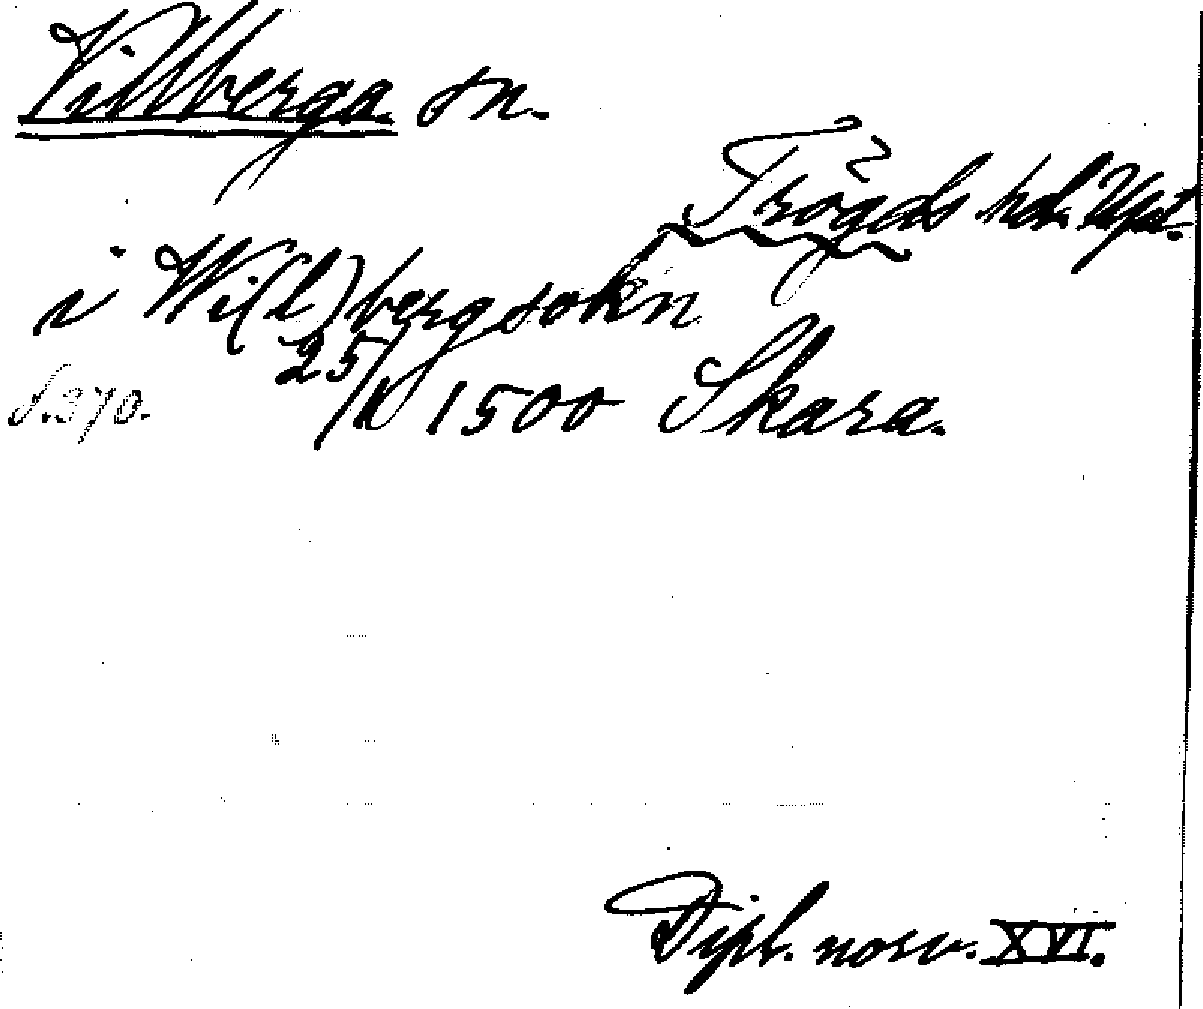 Villberga sn.
Trögds hd. Upl.
i Wi(l)bergsokn
25/11 1500 Skara.
s. 270.
Dipl. norv. XVI.